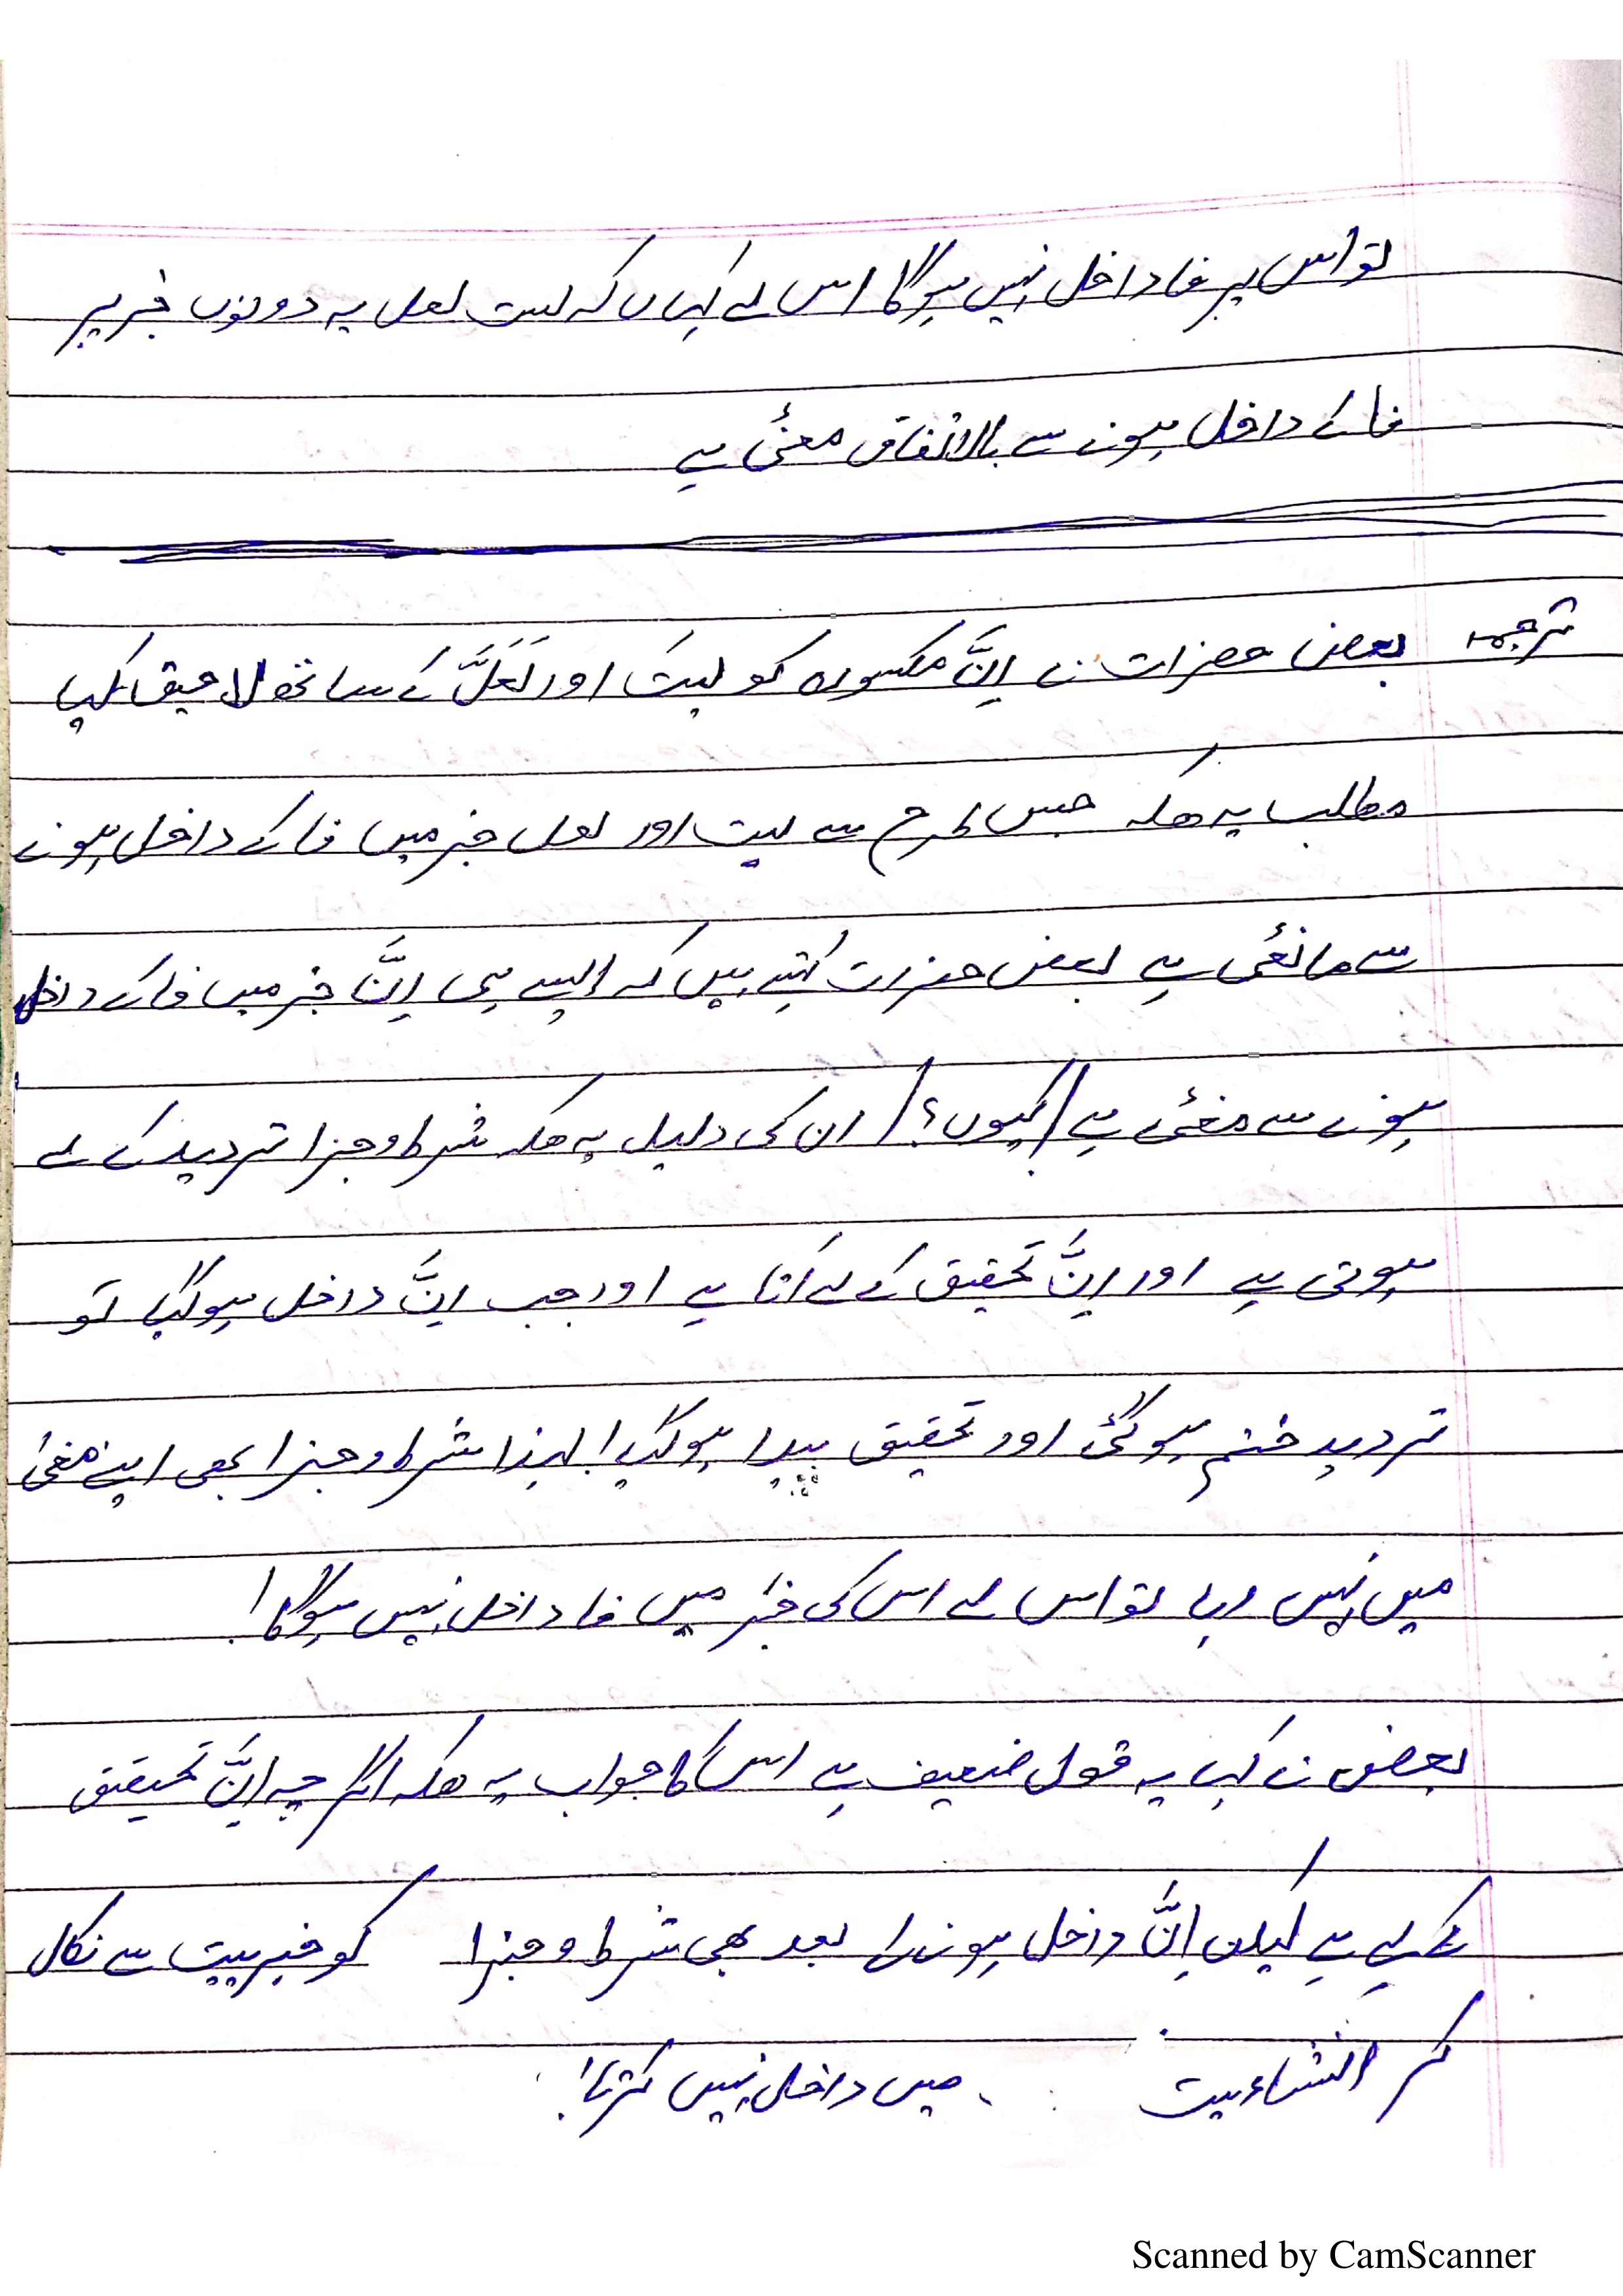 تو اس پر فا داخل نہیں ہوگا اس لے کہاں کہ لیت لعل یہ دونوں خبر پر
فا کے داخل ہونے سے بالاتفاق معنیٔ ہے
ترجمہ بعض حضرات نے اِنَّ مکسورہ کو لیتَ اور لَعَلَّ کے ساتھ لاحق کیا
مطلب یہ ھیکہ جس طرح سے لیت اور لعل خبر میں فا کے داخل ہونے
سے مانعٔی ہے بعض حضرت کہتے ہیں کہ ایسے ہی اِنَّ خبر میں فا کے داخل
ہونے سے معنیٔ ہے / کیوں؟ / ان کی دلیل یہ ھیکہ شرط و جزا تردید کے لے
ہوتی ہے اور اِنَّ تحقیق کے لے آتا ہے اور جب اِنَّ داخل ہو گیا تو
تردید ختم ہو گئی اور تحقیق پیدا ہو گیا! لہذا شرط و جزا بھی اپنے معنیٰ
میں نہیں رہا تو اس لے اس کی خبر میں فا داخل نہیں ہوگا!
بعض نے کہا یہ قول ضعیف ہے اس کا جواب یہ ھیکہ اگر چہ اِنَّ تحقیق
کے لیے ہے لیکن اِنَّ داخل ہونے کے بعد بھی شرط و جزا کو خبریت سے نکال
کر انشاءیت میں داخل نہیں کرتا!
Scanned by CamScanner